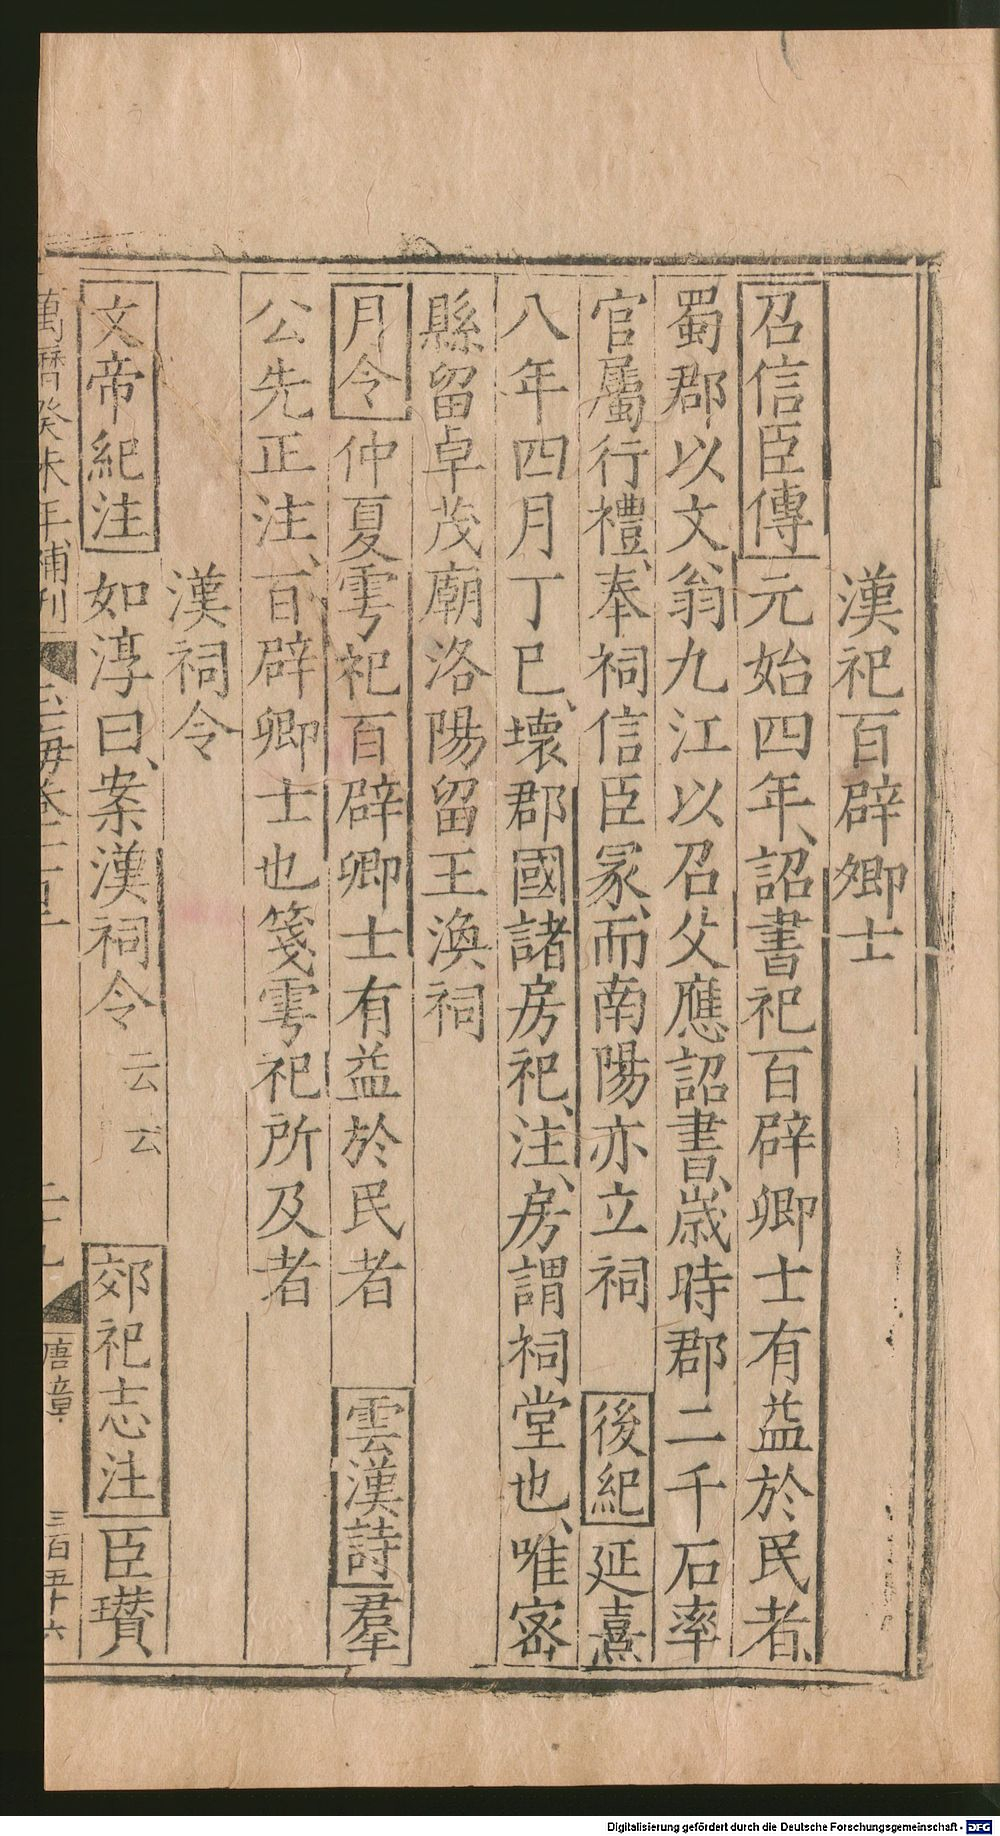 漢祀百辟卿士
召信臣傳元始四年、詔書祀百辟卿士有益於民者、
蜀郡以文翁九江以召父應詔書、歲時郡二千石率
官屬行禮、奉祠信臣冢、而南陽亦立祠 後紀延熹
八年四月丁巳、壞郡國諸房祀、注、房謂祠堂也、唯密
縣留卓茂廟洛陽留王渙祠
月令仲夏雩祀百辟卿士有益於民者 雲漢詩羣
公先正注、百辟卿士也箋雩祀所及者
漢祠令
文帝紀注如淳曰、案漢祠令云云 郊祀志注臣瓚
萬曆癸未年補刊 玉海卷 唐章 三百五十六
Digitalisierung gefördert durch die Deutsche Forschungsgemeinschaft - DFG